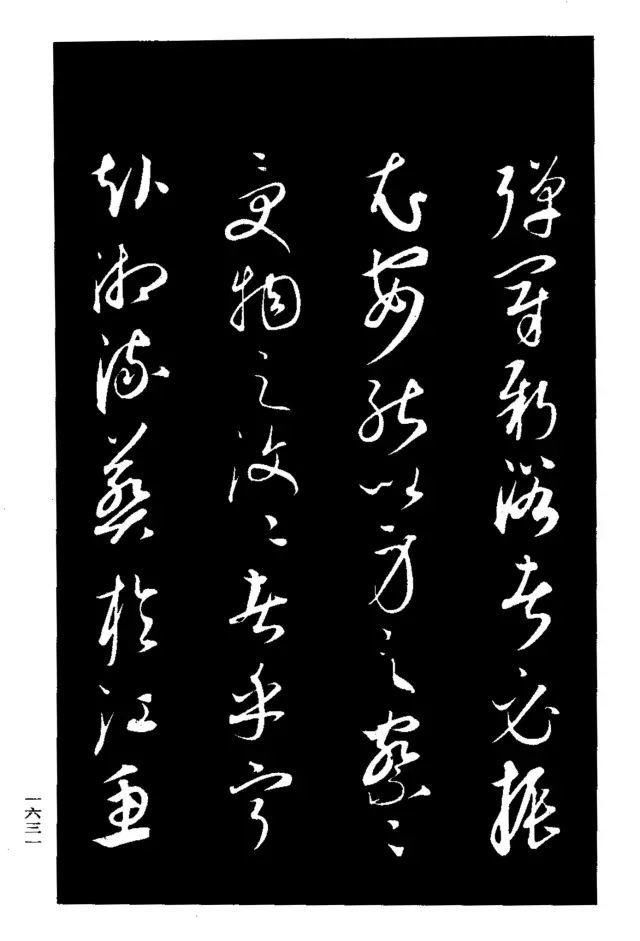 彈冠新浴者必振
衣安能以身之察〻
受物之汶〻者乎寧
赴湘流葬於江魚
一六三一